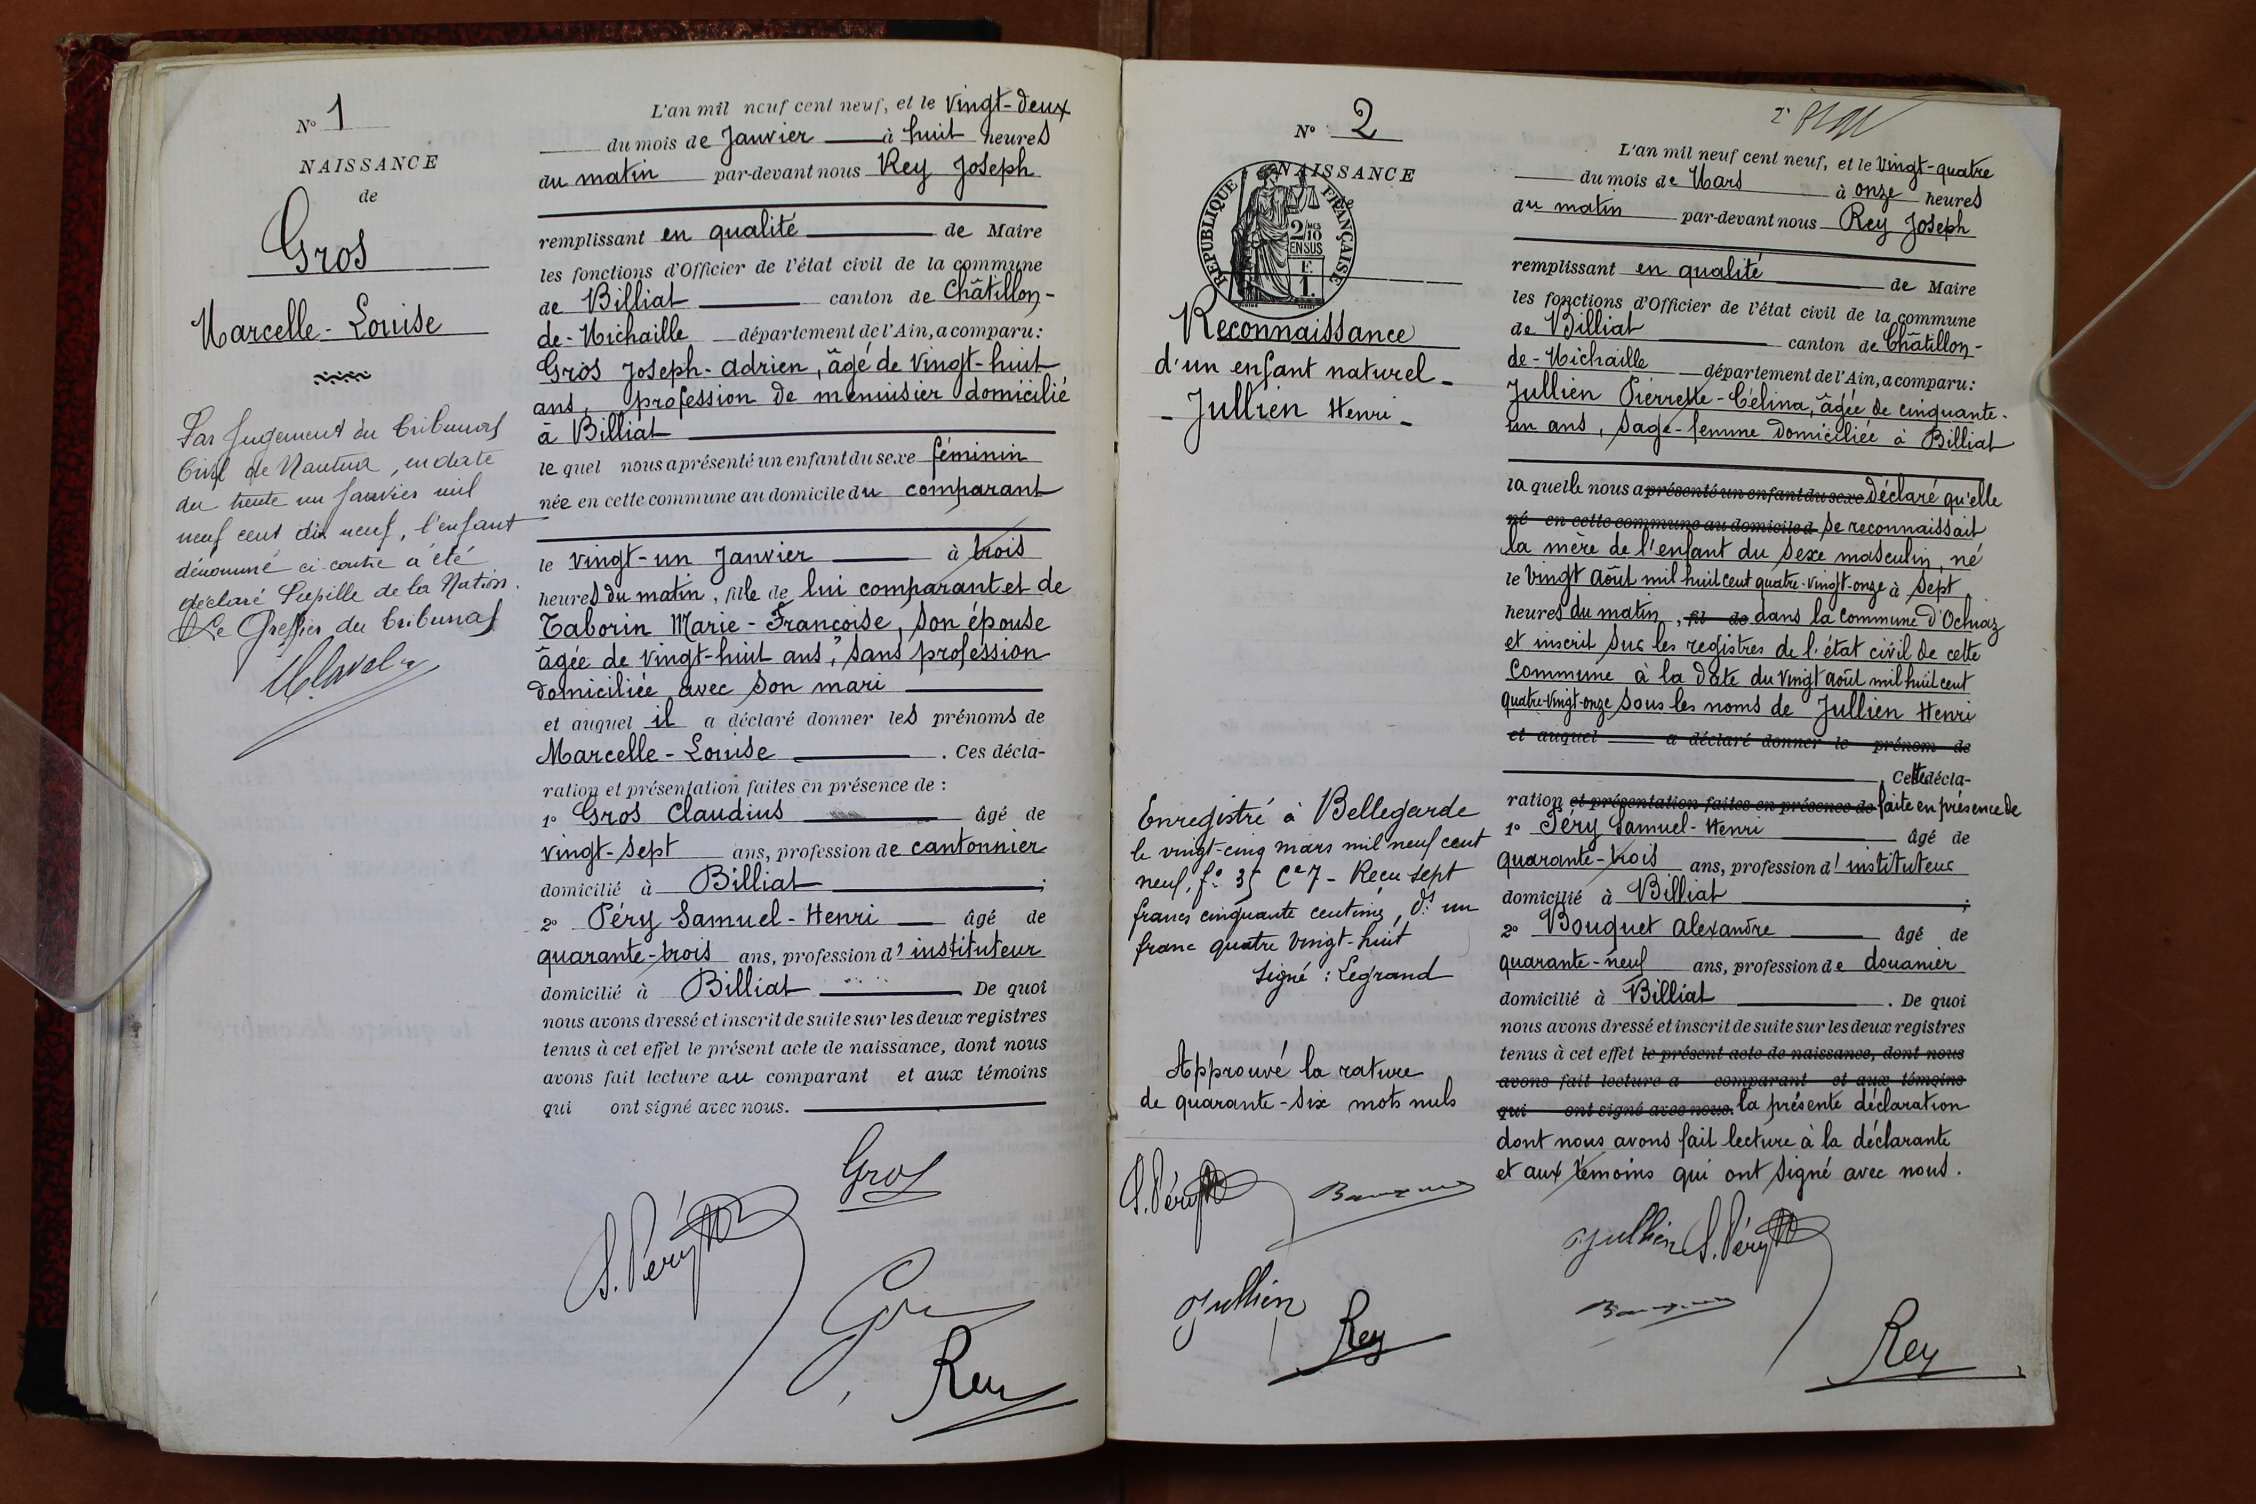 N° 1
NAISSANCE
de
Gros
Marcelle-Louise
Par Jugement du Tribunal
Civil de Nantua, en date
du trente un Janvier mil
neuf cent dix neuf, l'enfant
dénommé ci-contre a été
déclaré Pupille de la Nation.
Le Greffier du Tribunal
L'an mil neuf cent neuf, et le vingt-deux
du mois de Janvier à huit heures
du matin par-devant nous Rey Joseph
remplissant en qualité de Maire
les fonctions d'Officier de l'état civil de la commune
de Billiat canton de Châtillon-
de-Michaille département de l'Ain, a comparu:
Gros Joseph-Adrien, âgé de vingt-huit
ans, profession de menuisier domicilié
à Billiat
lequel nous a présenté un enfant du sexe féminin
née en cette commune au domicile du comparant
le vingt-un Janvier à trois
heures du matin, fille de lui comparant et de
Taborin Marie-Françoise, son épouse
âgée de vingt-huit ans, sans profession
domiciliée avec son mari
et auquel il a déclaré donner les prénoms de
Marcelle-Louise. Ces décla-
ration et présentation faites en présence de:
1° Gros Claudius âgé de
vingt-sept ans, profession de cantonnier
domicilié à Billiat;
2° Péry Samuel-Henri âgé de
quarante-trois ans, profession d'instituteur
domicilié à Billiat De quoi
nous avons dressé et inscrit de suite sur les deux registres
tenus à cet effet le présent acte de naissance, dont nous
avons fait lecture au comparant et aux témoins
qui ont signé avec nous.
Gros
S. Péry
Rey
N° 2
NAISSANCE
RÉPUBLIQUE FRANÇAISE
2/10 MES
EN SUS
F.
1.
Reconnaissance
d'un enfant naturel-
- Jullien Henri -
Enregistré à Bellegarde
le vingt-cinq mars mil neuf cent
neuf, f° 35 Ce 7 - Reçu sept
francs cinquante centimes, ds un
franc quatre vingt-huit
Signé: Legrand
Approuvé la rature
de quarante-six mots nuls
S. Péry
Jullien
Rey
L'an mil neuf cent neuf, et le vingt-quatre
du mois de Mars à onze heures
du matin par-devant nous Rey Joseph
remplissant en qualité de Maire
les fonctions d'Officier de l'état civil de la commune
de Billiat canton de Châtillon-
de-Michaille département de l'Ain, a comparu:
Jullien Pierrette-Célina, âgée de cinquante-
un ans, sage-femme domiciliée à Billiat
laquelle nous a présenté un enfant du sexe déclaré qu'elle
né en cette commune au domicile d se reconnaissait
la mère de l'enfant du sexe masculin, né
le vingt août mil huit cent quatre-vingt-onze à sept
heures du matin, fil de dans la commune d'Ochiaz
et inscrit sur les registres de l'état civil de cette
commune à la date du vingt août mil huit cent
quatre-vingt-onze sous les noms de Jullien Henri
et auquel a déclaré donner le prénom de
Cette décla-
ration et présentation faites en présence de faite en présence de
1° Péry Samuel-Henri âgé de
quarante-trois ans, profession d'instituteur
domicilié à Billiat;
2° Bouquet Alexandre âgé de
quarante-neuf ans, profession de douanier
domicilié à Billiat. De quoi
nous avons dressé et inscrit de suite sur les deux registres
tenus à cet effet le présent acte de naissance, dont nous
avons fait lecture a comparant et aux témoins
qui ont signé avec nous. la présente déclaration
dont nous avons fait lecture à la déclarante
et aux témoins qui ont signé avec nous.
Jullien S. Péry
Rey